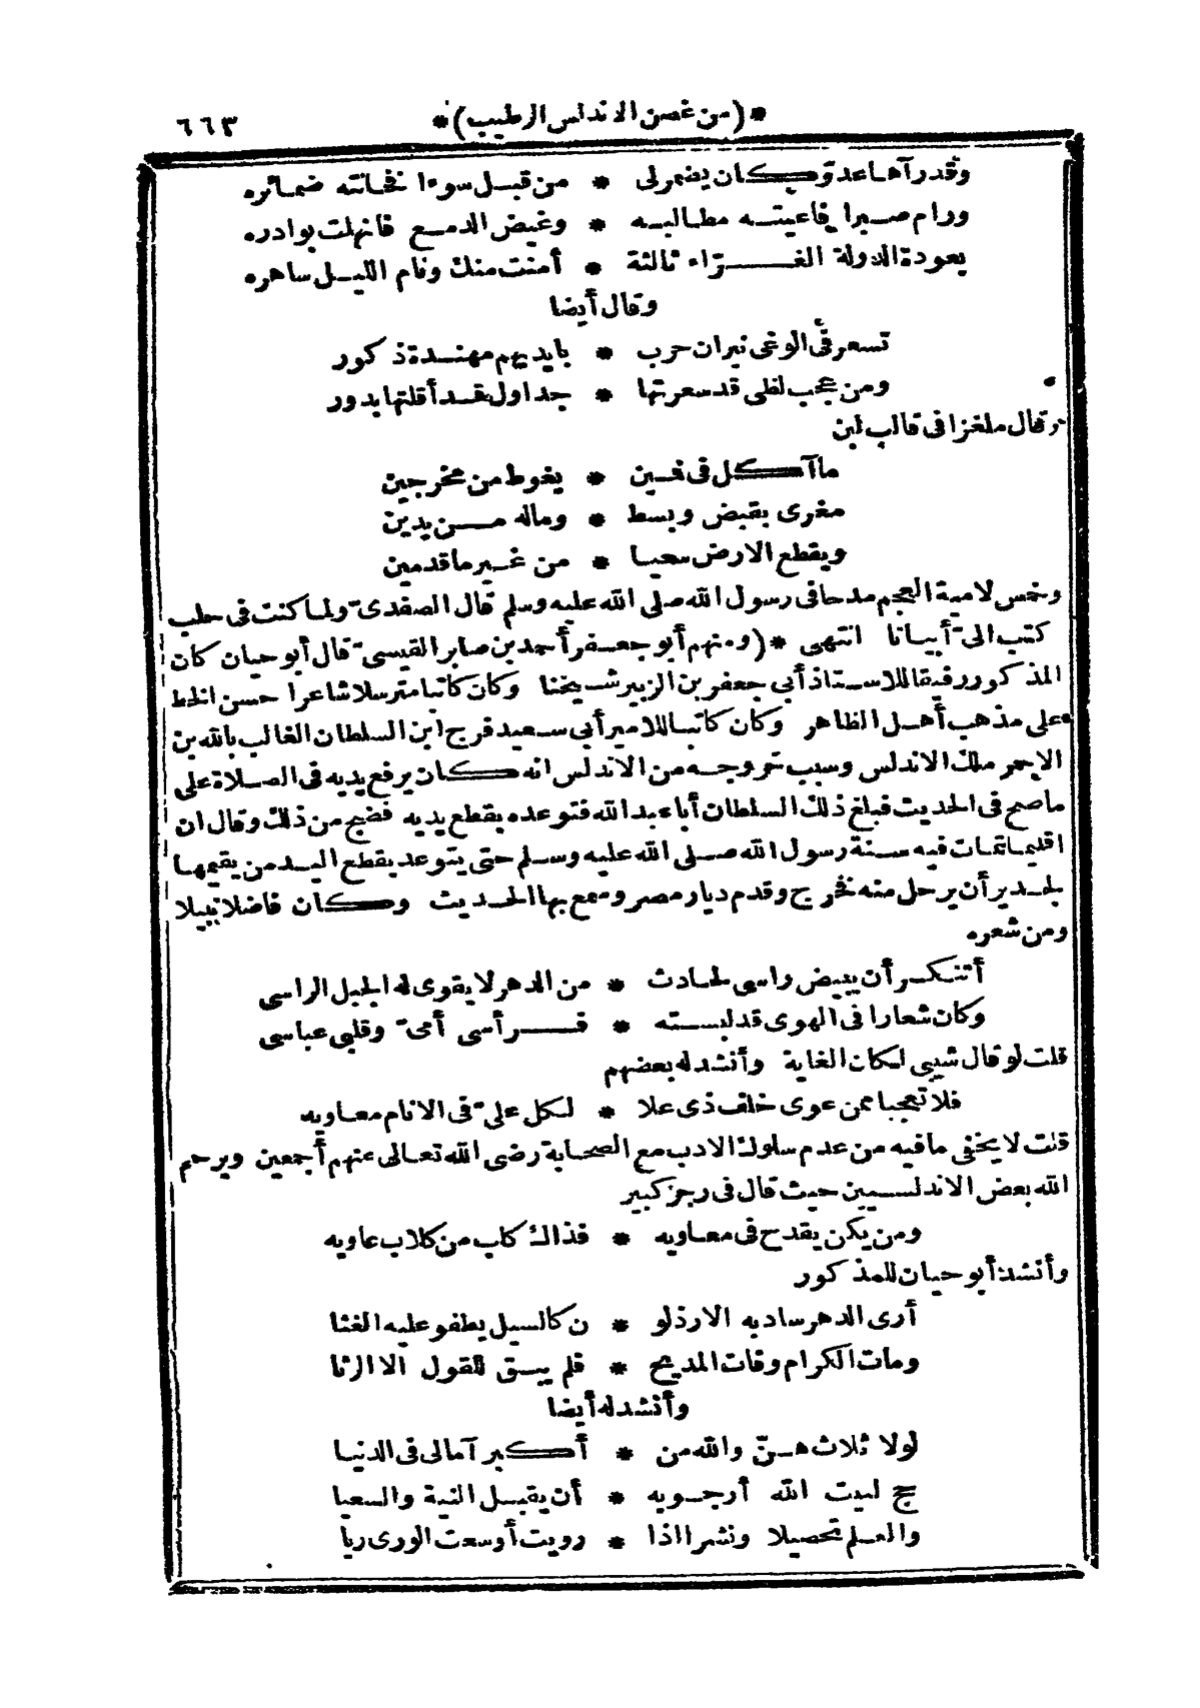 *(من غصن الاندلس الرطيب)* ٦٦٣
وقد رآها عدوّ كان يضمر لى * من قبل سوءا نخانته ضمائره
ورام صبرا فاعيته مطالبه * وغيض الدمع فانهلت بوادره
بعودة الدولة الغرّاء ثالثة * أمنت منك ونام الليل ساهره
وقال أيضا
تسعر فى الوغى نيران حرب * بايديهم مهندة ذكور
ومن عجب لظى قد سعرتها * جداول قد أقلتها بدور
وقال ملغزا فى قالب لبن
ما آكل فى فمين * يغوط من مخرجين
مغرى بقبض وبسط * وماله من يدين
ويقطع الارض سعيا * من غير ما قدمين
وخمس لامية العجم مدحا فى رسول الله صلى الله عليه وسلم قال الصفدىّ ولما كنت فى حلب
كتب الىّ أبياتا انتهى *(ومنهم أبو جعفر أحمد بن صابر القيسىّ قال أبو حيان كان
المذكور رفيقا للاستاذ أبى جعفر بن الزبير شيخنا وكان كاتبا مترسلا شاعرا حسن الخط
على مذهب أهل الظاهر وكان كاتبا للامير أبى سعيد فرج ابن السلطان الغالب بالله بن
الاحمر ملك الاندلس وسبب خروجه من الاندلس انه كان يرفع يديه فى الصلاة على
ما صح فى الحديث فبلغ ذلك السلطان أبا عبد الله فتوعده بقطع يديه فضج من ذلك وقال ان
اقليما تمات فيه سنة رسول الله صلى الله عليه وسلم حتى يتوعد بقطع اليد من يقيمها
لجدير أن يرحل منه نخرج وقدم ديار مصر وسمع بها الحديث وكان فاضلا نبيلا
ومن شعره
أتنكر أن يبيض راسى لحادث * من الدهر لا يقوى له الجبل الراسى
وكان شعارا فى الهوى قد لبسته * فرأسى أمىّ وقلبى عباسى
قلت لو قال شيبى لكان الغاية وأنشد له بعضهم
فلا تعجبا ممن عوى خلف ذى علا * لكل علىّ فى الانام معاويه
قلت لا يخفى ما فيه من عدم سلوك الادب مع الصحابة رضى الله تعالى عنهم أجمعين ويرحم
الله بعض الاندلسيين حيث قال فى رجز كبير
ومن يكن يقدح فى معاويه * فذاك كلب من كلاب عاويه
وأنشد أبو حيان للمذكور
أرى الدهر ساد به الارذلو * ن كالسيل يطفو عليه الغثا
ومات الكرام وفات المديح * فلم يبق للقول الا الرثا
وأنشد له أيضا
لولا ثلاث هنّ والله من * أكبر آمالى فى الدنيا
حج لبيت الله أرجو به * أن يقبل النية والسعيا
والعلم تحصيلا ونشرا اذا * رويت أوسعت الورى ريا